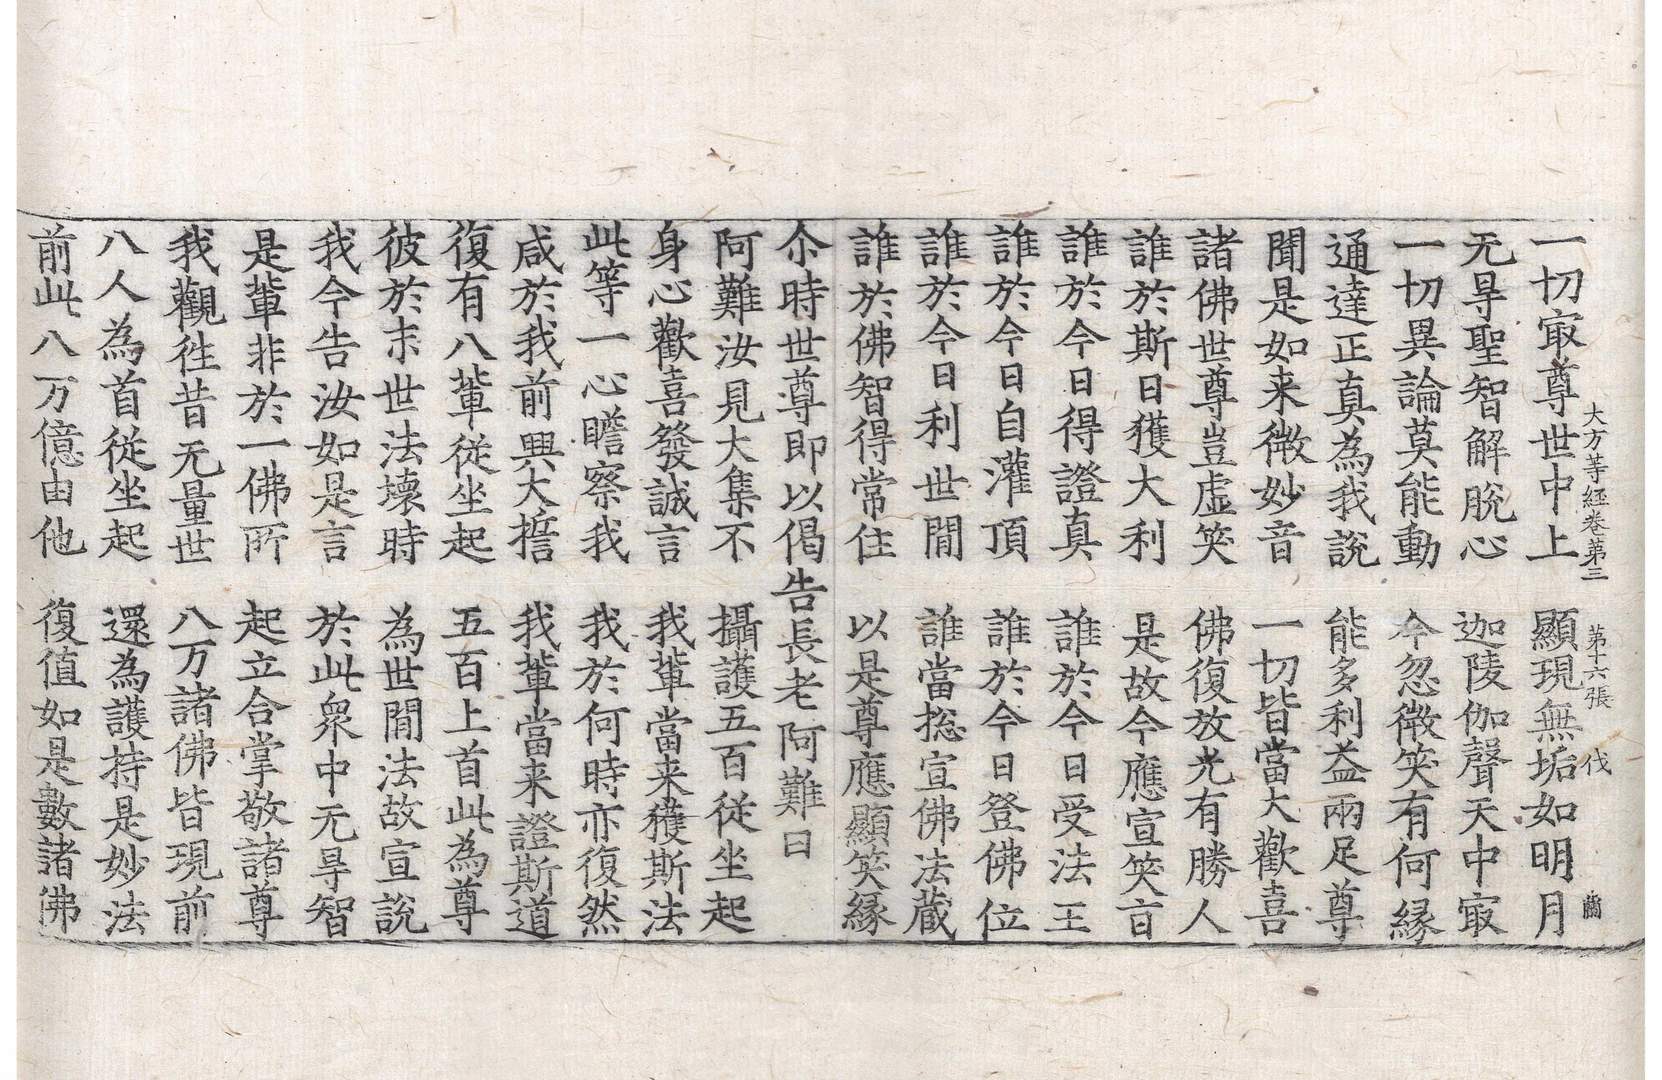 大方等経卷第三 第十六張 伐 蘭
一切㝡尊世中上 顯現無垢如明月
无㝵聖智解脫心 迦陵伽聲天中㝡
一切異論莫能動 今忽微笑有何緣
通達正真為我說 能多利益兩足尊
聞是如来微妙音 一切皆當大歡喜
諸佛世尊豈虛笑 佛復放光有勝人
誰於斯日獲大利 是故今應宣笑㫖
誰於今日得證真 誰於今日受法王
誰於今日自灌頂 誰於今日登佛位
誰於今日利世閒 誰當捴宣佛法蔵
誰於佛智得常住 以是尊應顯笑緣
尒時世尊即以偈告長老阿難曰
阿難汝見大集不 攝護五百從坐起
身心歡喜發誠言 我輩當来獲斯法
此等一心瞻察我 我於何時亦復然
咸於我前興大誓 我輩當来證斯道
復有八輩從坐起 五百上首此為尊
彼於末世法壞時 為世閒法故宣說
我今告汝如是言 於此衆中无㝵智
是輩非於一佛所 起立合掌敬諸尊
我觀徃昔无量世 八万諸佛皆現前
八人為首從坐起 還為護持是妙法
前此八万億由他 復值如是數諸佛